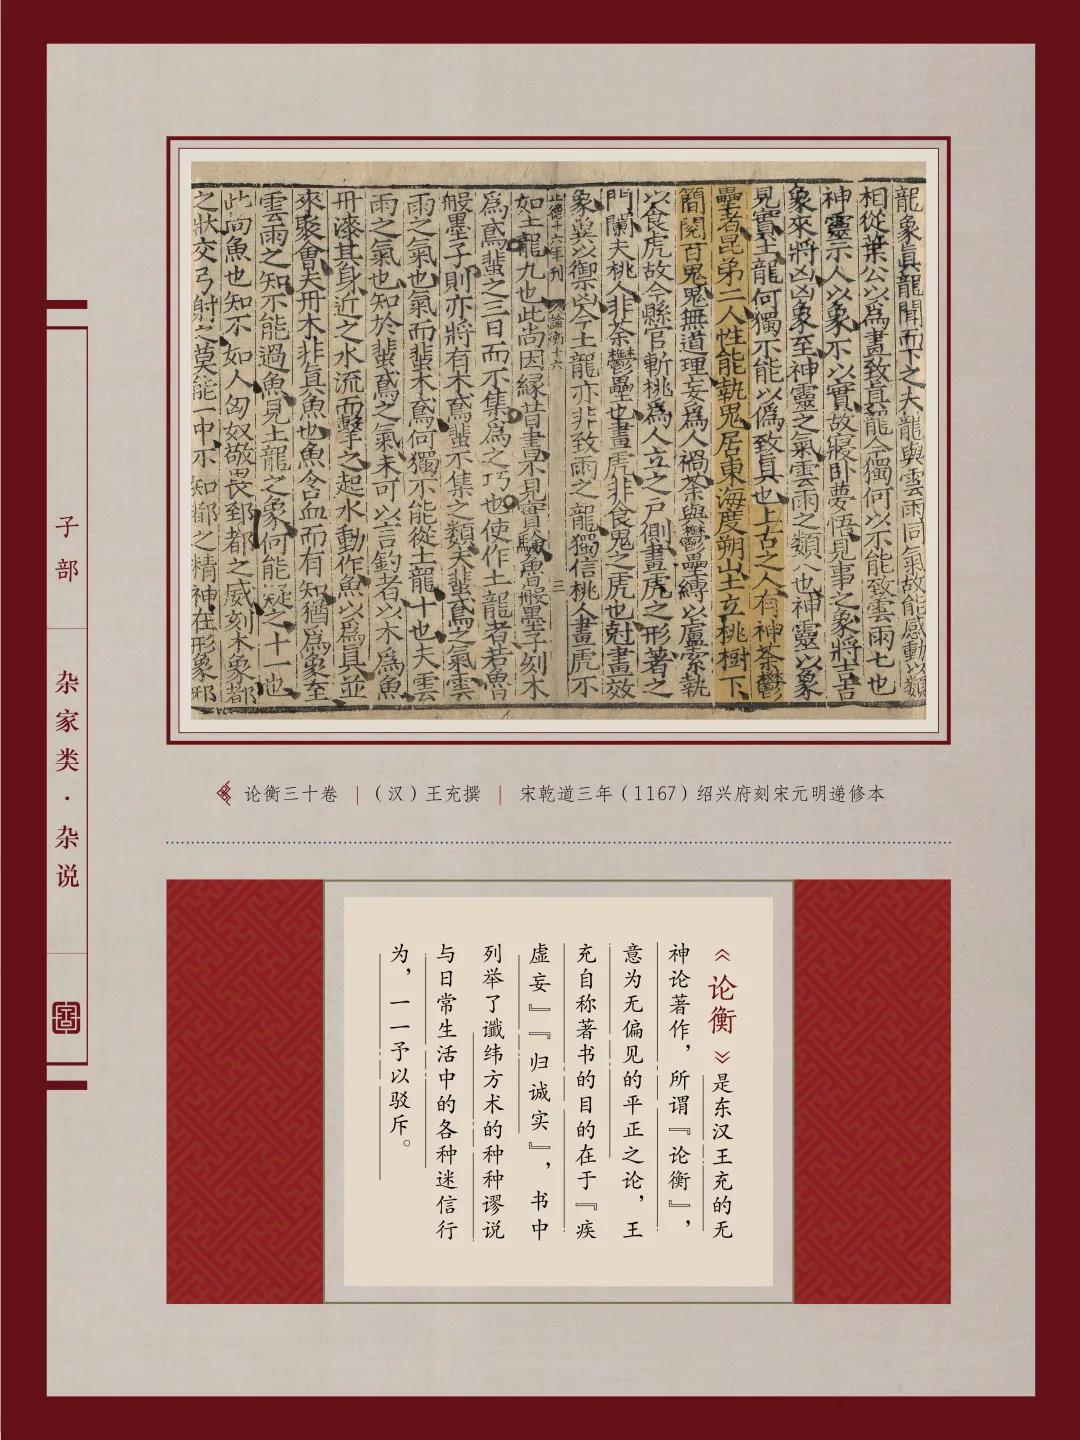 龍象眞龍聞而下之夫龍與雲雨同氣故能感動以類
相從葉公以爲畫致眞龍今獨何以不能致雲雨七也
神靈示人以象不以實故寢臥夢悟見事之象將吉
象來將凶凶象至神靈之氣雲雨之類八也神靈以象
見實土龍何獨不能以僞致眞也上古之人有神荼鬱
壘者昆弟二人性能執鬼居東海度朔山上立桃樹下
簡閱百鬼鬼無道理妄爲人禍荼與鬱壘縛以盧索執
以食虎故今縣官斬桃爲人立之戶側畫虎之形著之
門闌夫桃人非荼鬱壘也畫虎非食鬼之虎也尅畫效
象冀以禦凶今土龍亦非致雨之龍獨信桃人畫虎不
正德十六年刊 論衡十六 三
如土龍九也此尚因緣昔書不見實驗魯般墨子刻木
爲鳶蜚之三日而不集爲之巧也使作土龍者若魯
般墨子則亦將有木鳶蜚不集之類夫蜚鳶之氣雲
雨之氣也氣而蜚木鳶何獨不能從土龍十也夫雲
雨之氣也知於蜚鳶之氣未可以言釣者以木爲魚
丹漆其身近之水流而擊之起水動作魚以爲眞並
來聚會夫丹木非眞魚也魚含血而有知猶爲象至
雲雨之知不能過魚見土龍之象何能疑之十一也
此尚魚也知不如人匈奴敬畏郅都之威刻木象都
之狀交弓射之莫能一中不知都之精神在形象邪
论衡三十卷 |（汉）王充撰 | 宋乾道三年（1167）绍兴府刻宋元明递修本
子部
杂家类·杂说
《论衡》是东汉王充的无
神论著作，所谓『论衡』，
意为无偏见的平正之论，王
充自称著书的目的在于『疾
虚妄』『归诚实』，书中
列举了谶纬方术的种种谬说
与日常生活中的各种迷信行
为，一一予以驳斥。